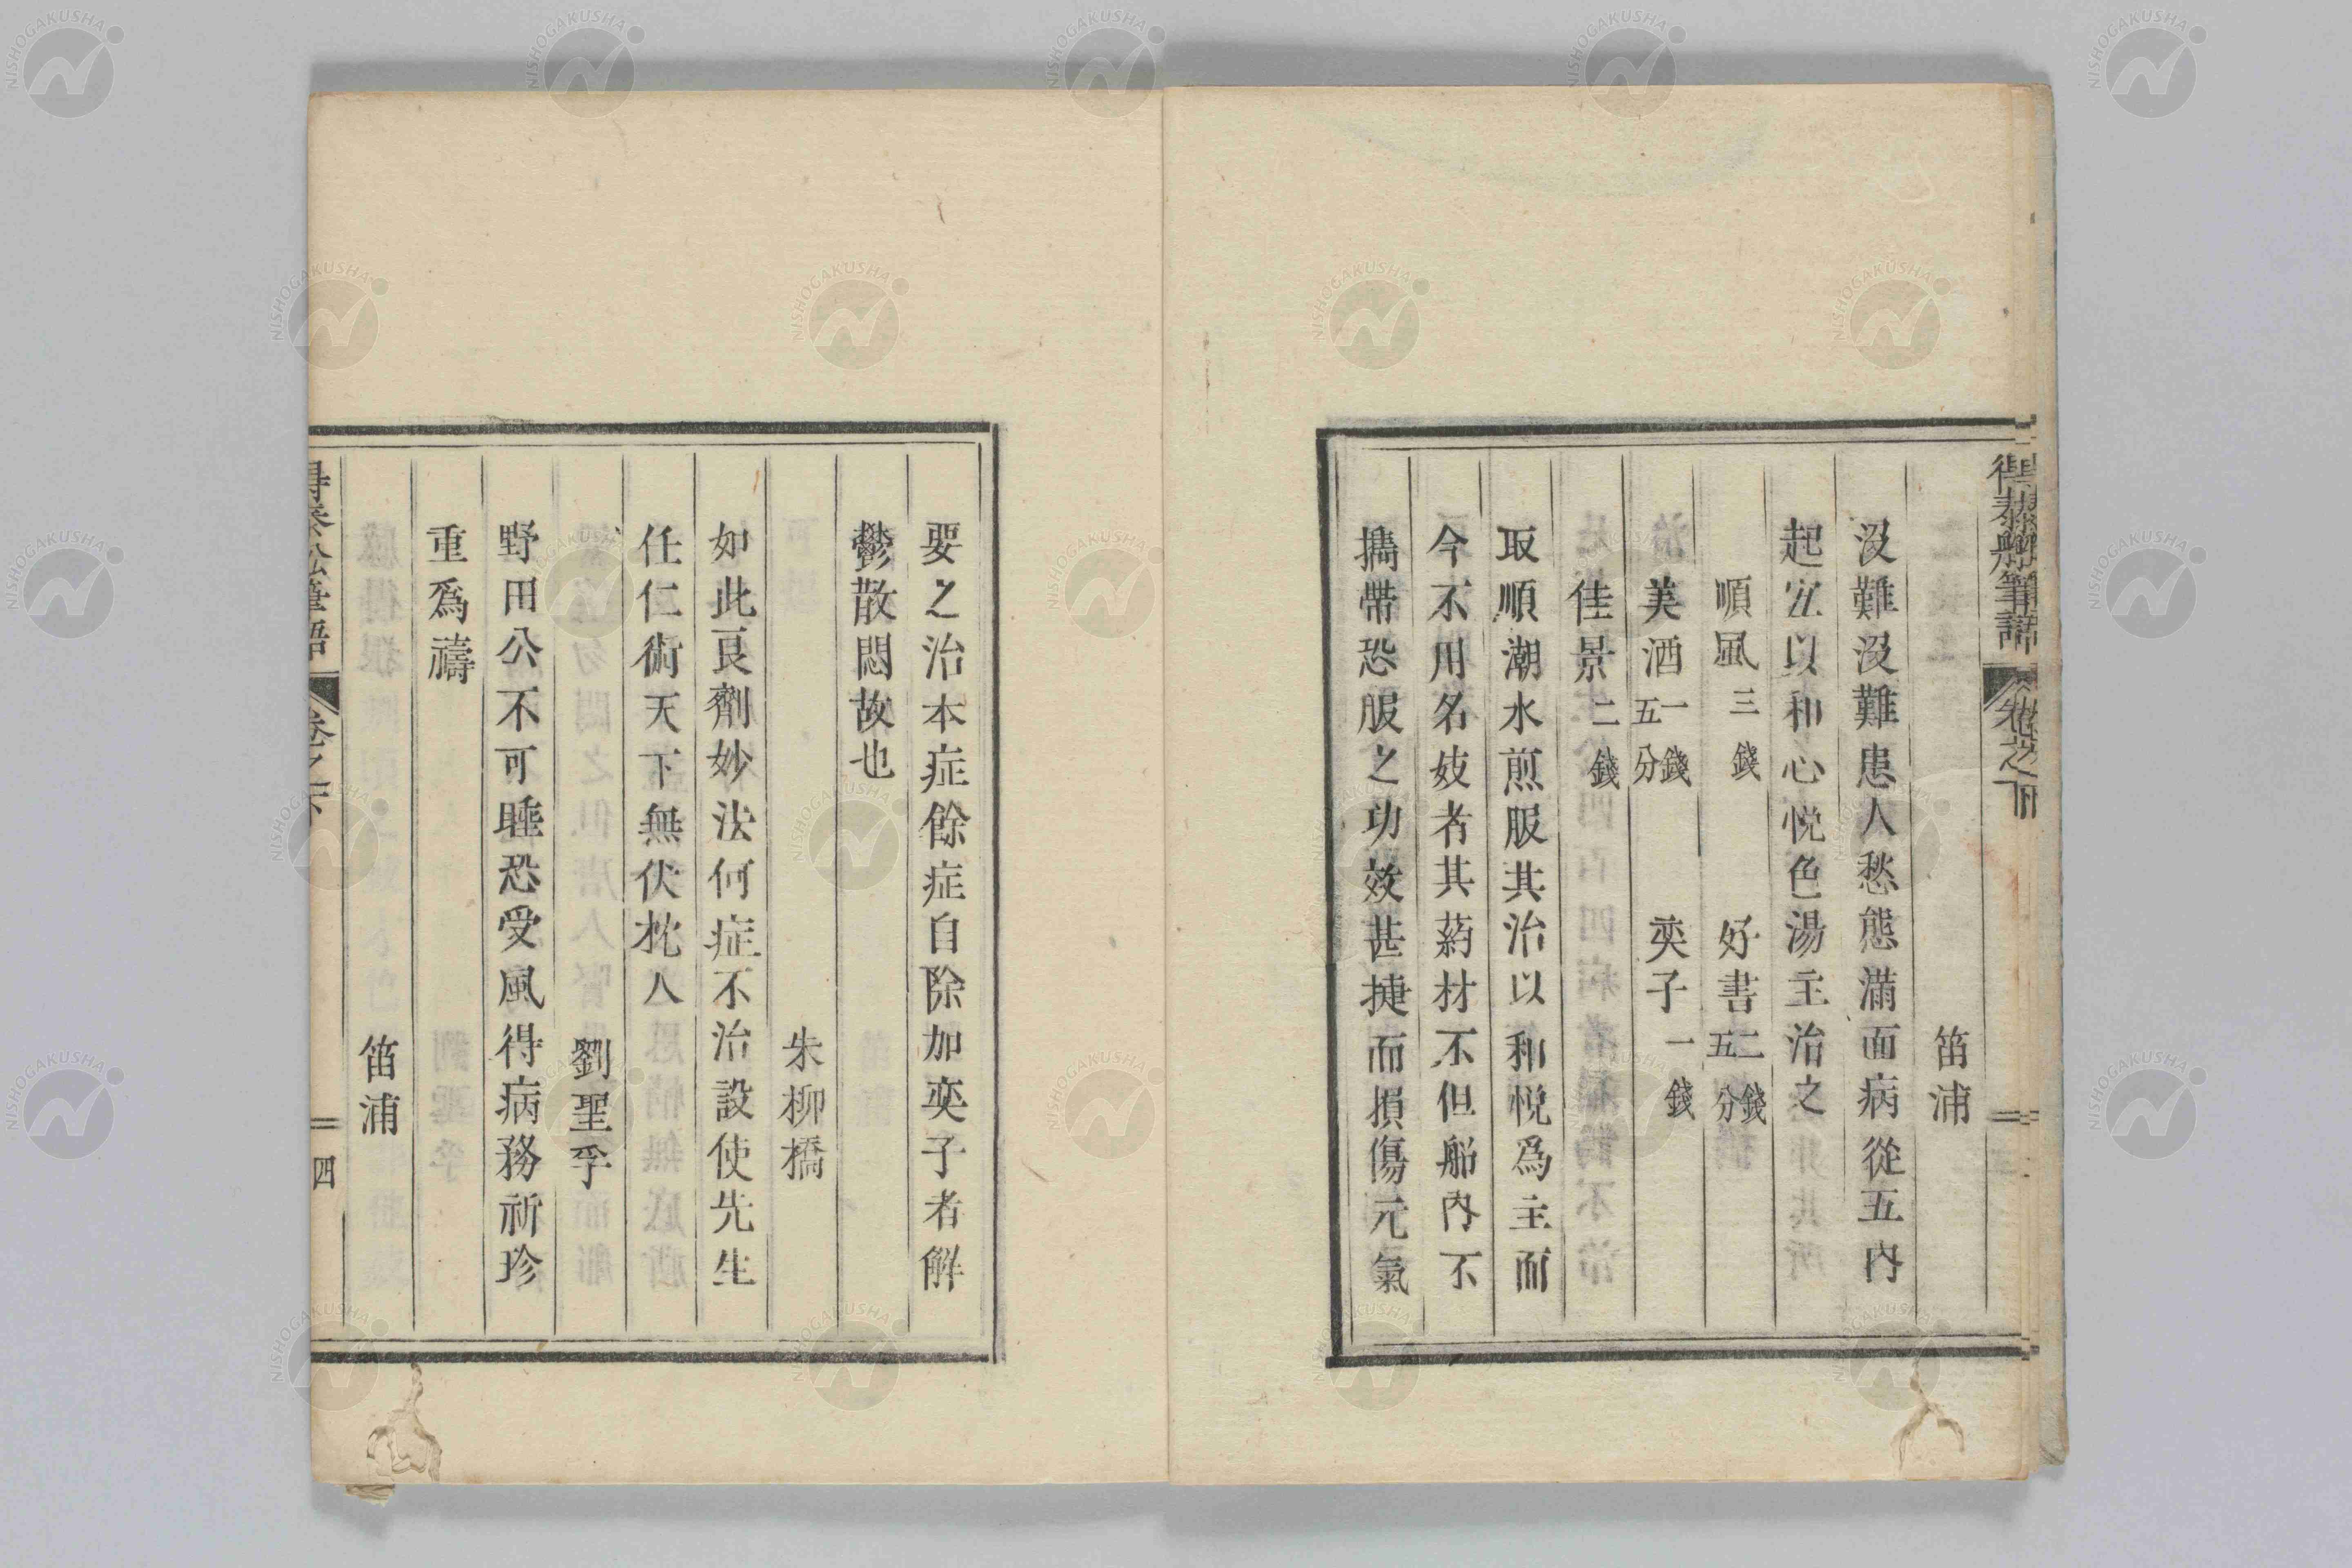 笛浦
没難没難患人愁態滿面病從五内
起宜以和心悦色湯主治之
順風三錢 好書二錢五分
美酒一錢五分 奕子一錢
佳景二錢
取順潮水煎服其治以和悦爲主而
今不用名妓者其葯材不但船内不
擕帶恐服之功效甚捷而損傷元氣
要之治本症餘症自除加奕子者解
鬱散悶故也
朱柳橋
如此良劑妙法何症不治設使先生
任仁術天下無伏枕人
劉聖孚
野田公不可睡恐受風得病務祈珍
重爲禱
笛浦
四
NISHOGAKUSHA